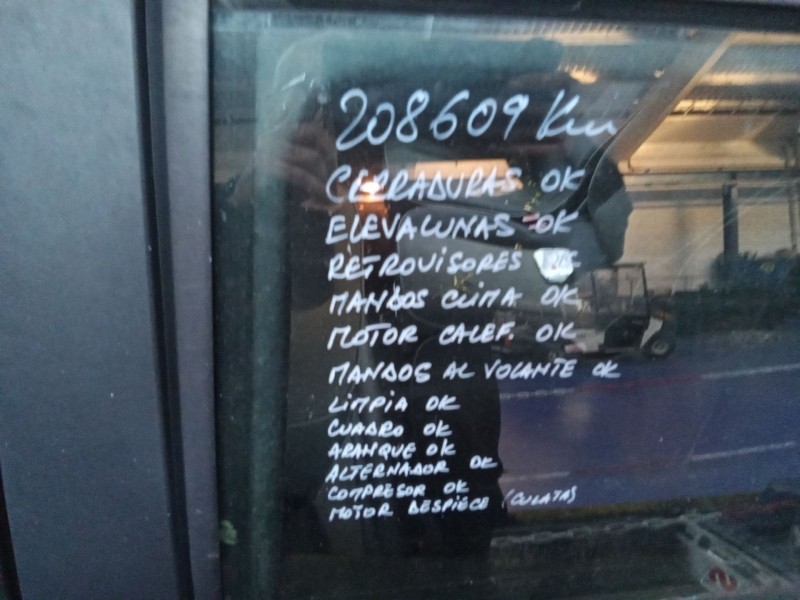 208609 Km
CERRADURAS OK
ELEVALUNAS OK
RETROVISORES
MANDOS CLIMA OK
MOTOR CALEF. OK
MANDOS AL VOLANTE OK
LIMPIA OK
CUADRO OK
ARANQUE OK
ALTERNADOR OK
COMPRESOR OK
MOTOR DESPIECE (CULATA)